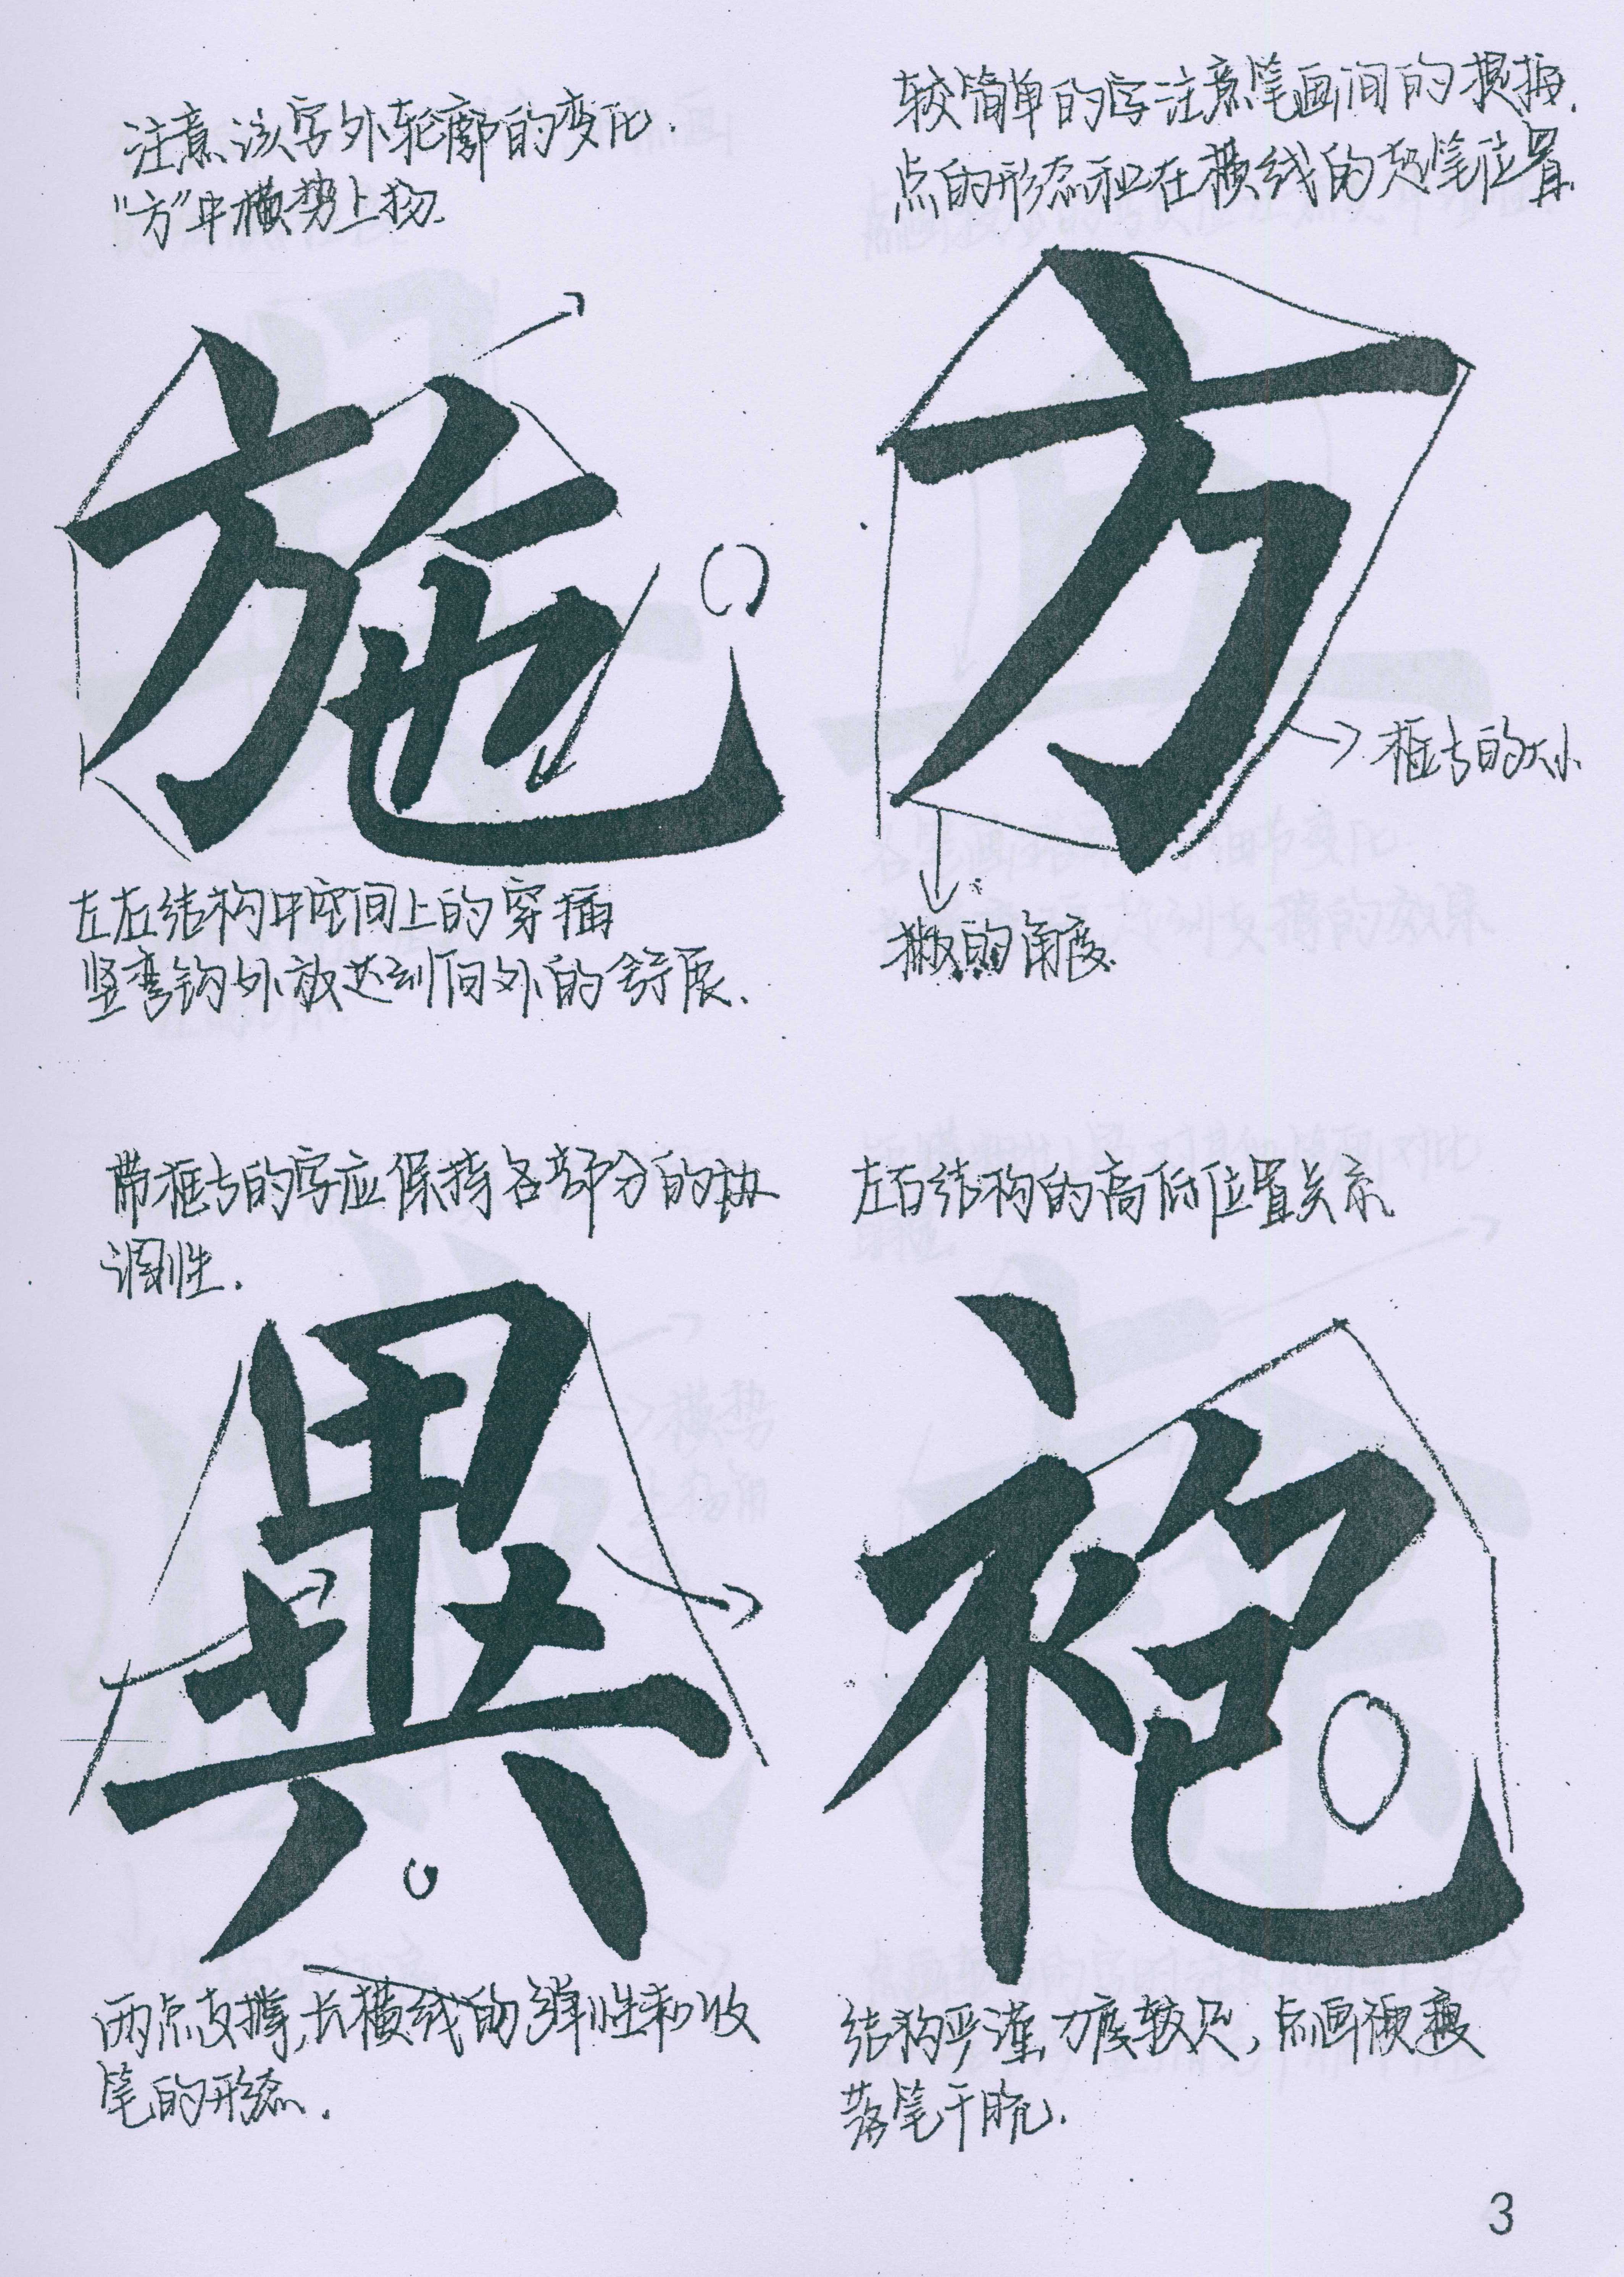 注意该字外轮廓的变化.
"方"中横势上扬.
施
左右结构中空间上的穿插
竖弯钩外放达到向外的舒展.
较简单的字注意笔画间的提按.
点的形态和在横线的起笔位置.
方
框古的大小
撇的角度.
带框古的字应保持各部分的协
调性.
異
两点支撑,长横线的弹性和收
笔的形态.
左右结构的高低位置关系.
袍
结构严谨,力度较足,点画硬瘦
落笔干脆.
3